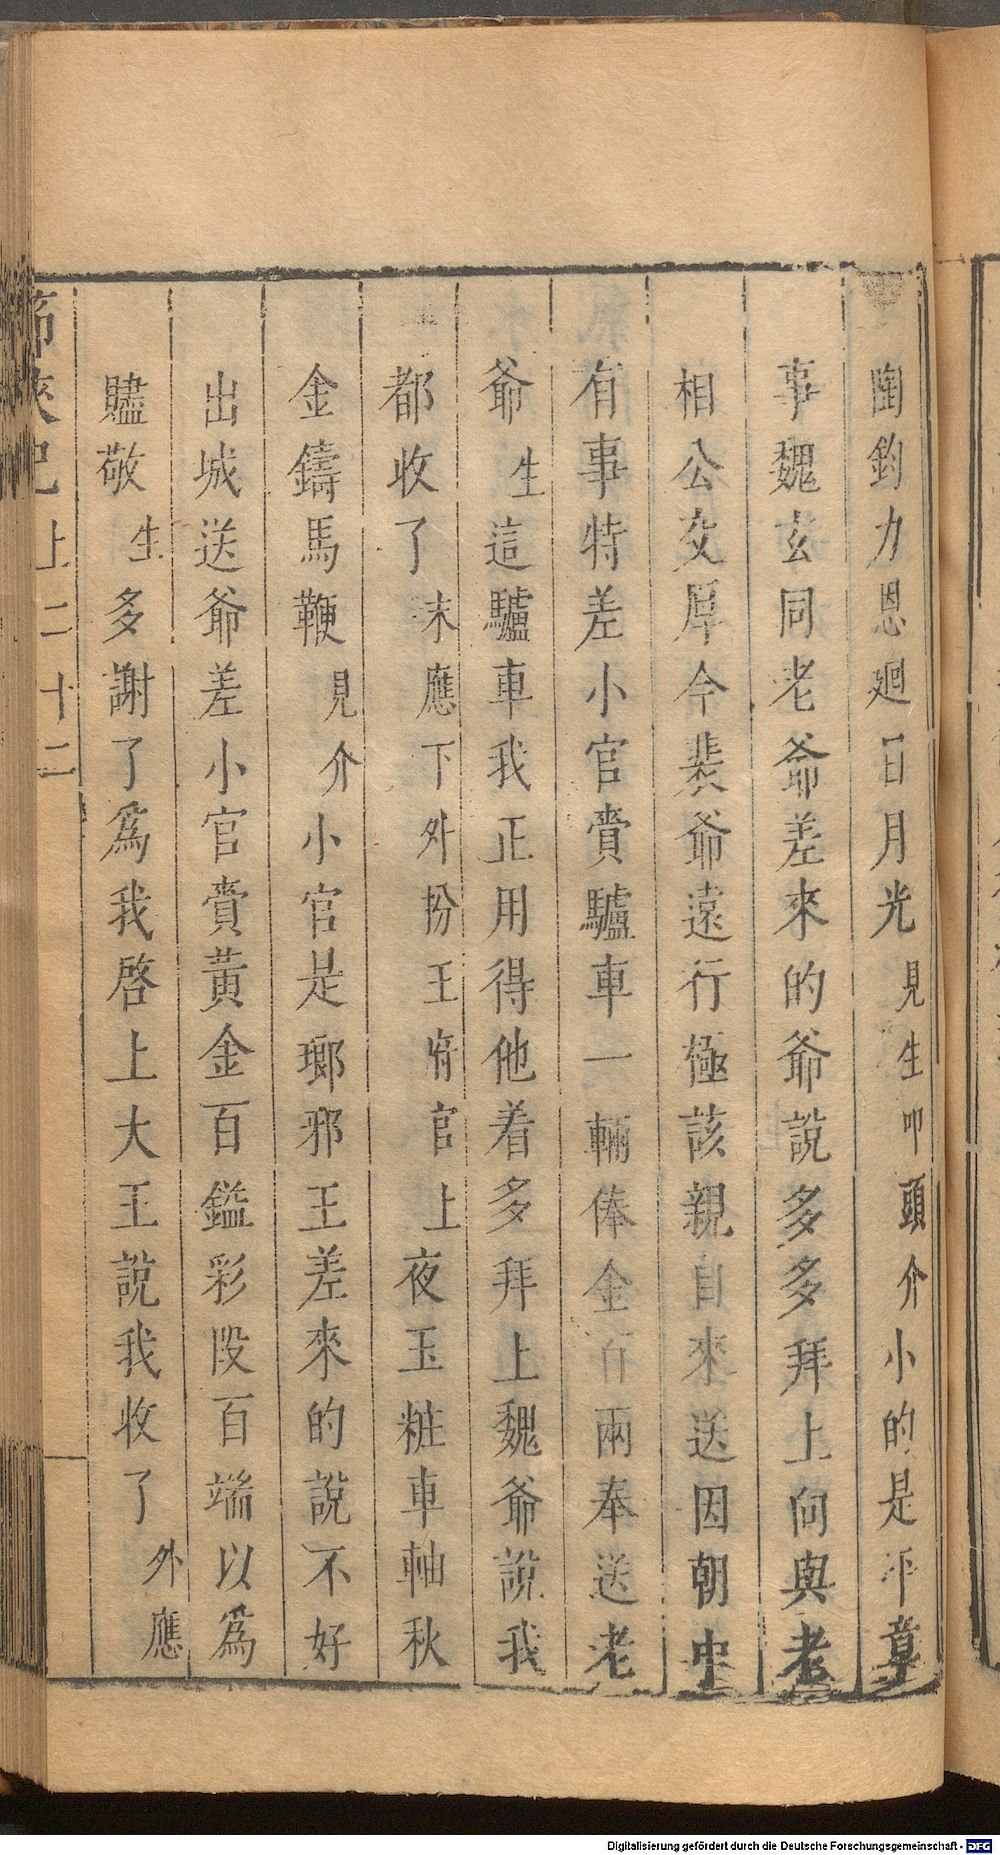 陶鈞力恩廻日月光見生叩頭介小的是平章
事魏玄同老爺差來的爺說多多拜上向與老
相公交厚今裴爺遠行極該親自來送因朝中
有事特差小官賫驢車一輛俸金百兩奉送老
爺生這驢車我正用得他着多拜上魏爺說我
都收了末應下外扮王府官上夜玉粧車軸秋
金鑄馬鞭見介小官是瑯邪王差來的說不好
出城送爺差小官賫黃金百鎰彩段百端以為
贐敬生多謝了為我啓上大王說我收了外應
節俠記 上 二十二
Digitalisierung gefördert durch die Deutsche Forschungsgemeinschaft - DFG